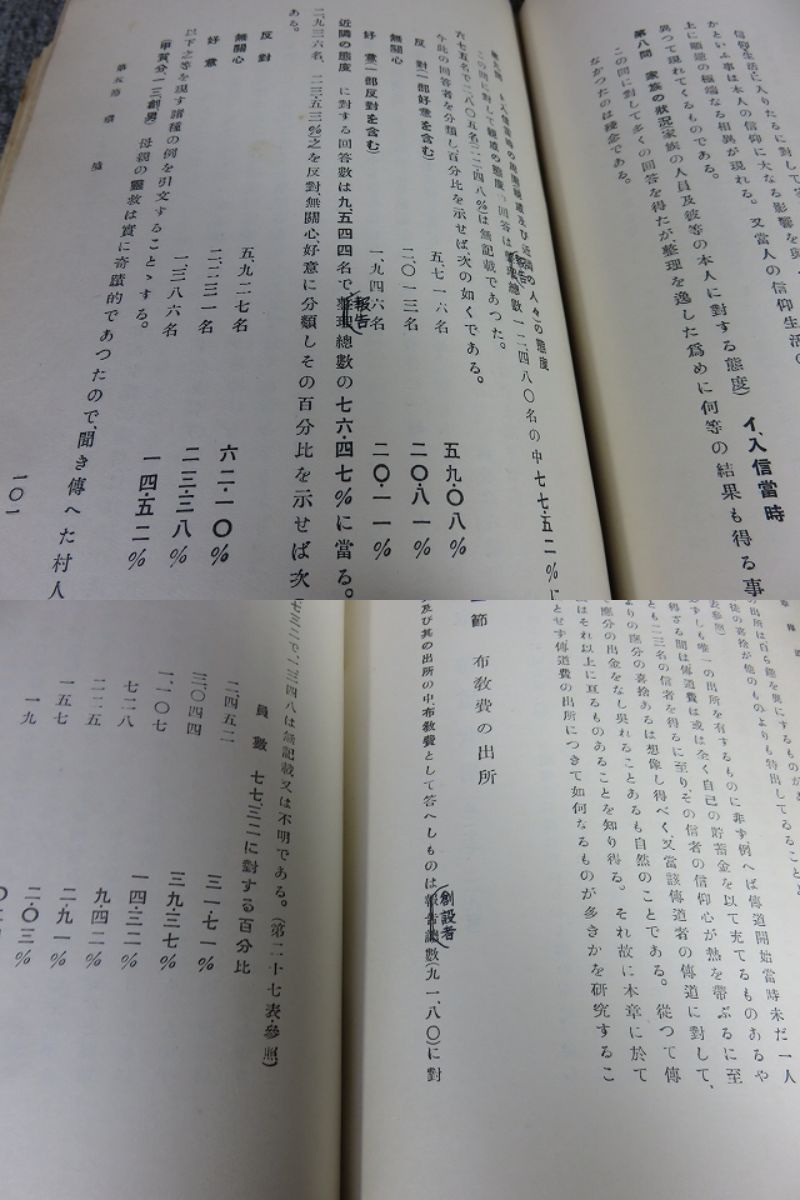 信仰生活に入りたるに對して
かといふ事は本人の信仰に大なる影響を與
上に順逆の極端なる相異が現れる。又當人の信仰生活の
異つて現れてくるものである。
第八問 家族の狀況家族の人員及彼等の本人に對する態度) イ、入信當時
この問に對して多くの回答を得たが、整理を逸した爲めに何等の結果も得る事
なかつたのは殘念である。
の態度
この問に對して親戚の態度 回答は整理總數一二、四八〇名の中七七・五二%に
報告
六七五名で二、八〇五名(二二・四八%)は無記載であつた。
今此の回答者を分類し、百分比を示せば、次の如くである。
五、七一六名 五九・〇八%
反 對二部好意を含む) 二、〇一三名 二〇・八一%
無關心 一、九四六名 二〇・一一%
好 意一部反對を含む)
近隣の態度 に對する回答數は九、五四四名で整理總數の七六・四七%に當る。
報告
二、九三六名、二三・五三%)之を反對、無關心、好意に分類しその百分比を示せば次
ある。
反 對 五、九二七名 六二・一〇%
無關心 二、二三一名 二三・三八%
好 意 一、三八六名 一四・五二%
以下之等を現す諸種の例を引文することゝする。
(甲賀分一三創男) 母親の靈救は實に奇蹟的であつたので、聞き傳へた村人
第五章 環 境
一〇一
の出所は自ら趣を異にするものがあ
徒の喜捨が他のものよりも特出してゐること
參照)
ずしも唯一の出所を有するものに非ず例へば傳道開始當時未だ一人
得ざる間は傳道費は或は全く自己の貯蓄金を以て充てるものあるや
とも二三名の信者を得るに至り、その信者の信仰心が熱を帶ぶるに至
よりの應分の喜捨あるは想像し得べく、又當該傳道者の傳道に對して、
が應分の出金をなし與れることあるも自然のことである。從つて傳
はそれ以上に亙るものあることを知り得る。それ故に本章に於て
とせず傳道費の出所につきて如何なるものが多きかを研究するこ
節 布教費の出所
及び其の出所の中、布教費として答へしものは報告總數(九一、八〇)に對
創設者
七三二で、一三、四八は無記載又は不明である。(第二十七表・參照)
員數 七七、三二に對する百分比
二、四五二 三一・七一%
三、〇四四 三九・三七%
一、一〇七 一四・三二%
七二八 九・四二%
二二五 二・九一%
一五七 二・〇三%
一九